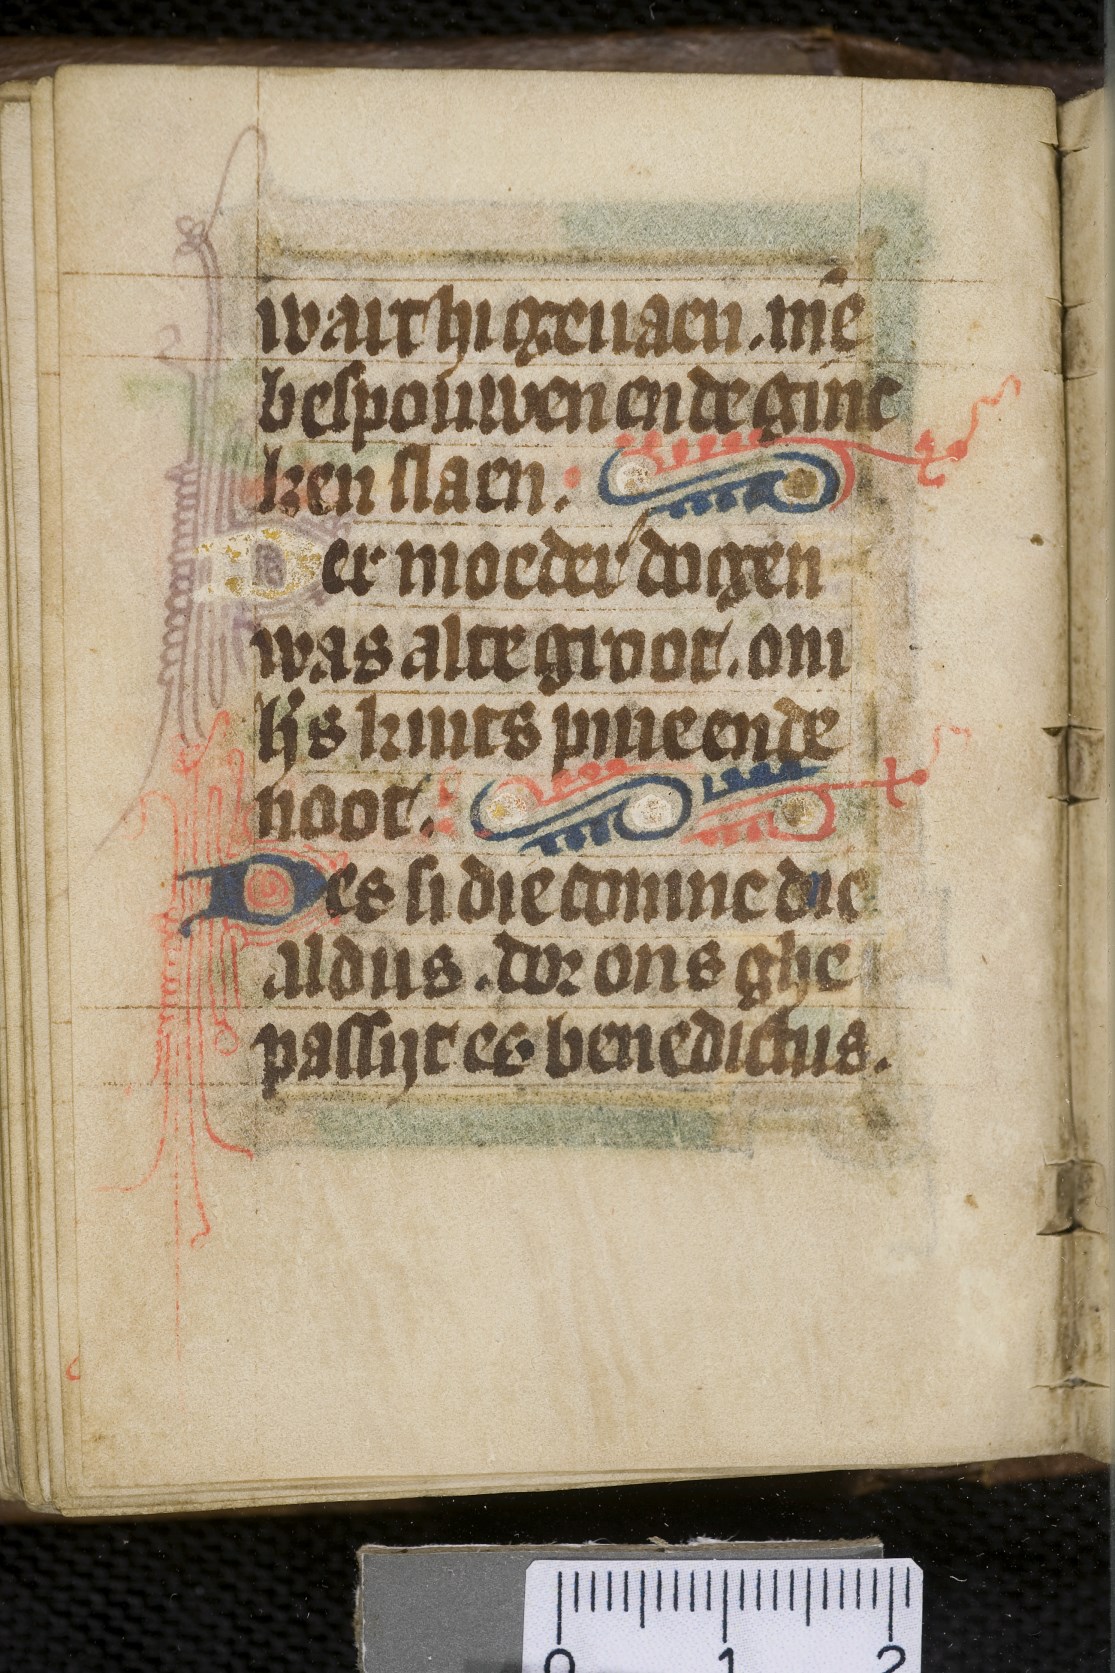 wart hi geuaen. mē
bespouwen ende ginc
ken slaen.
Der moeder dogen
was alte groot. om
hē̄s kints pine ende
noot.
Des si die coninc die
aldus. dor ons ghe
passijt es benedictus.
0 1 2